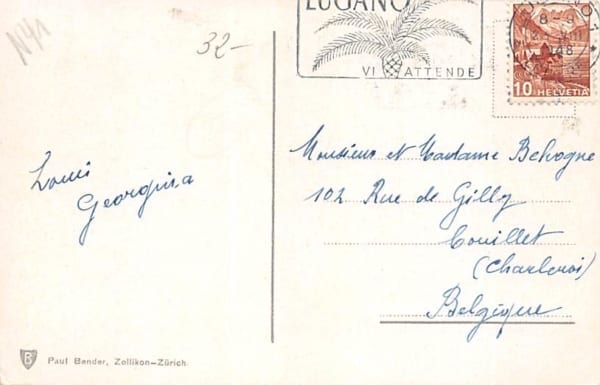 N41
32-
LUGANO
VI ATTENDE
10 HELVETIA
8-9
48
Monsieur et Madame Behogne
102 Rue de Gilly
Couillet
(Charleroi)
Belgique
Louis
Georgina
B
Paul Bender, Zollikon-Zürich.